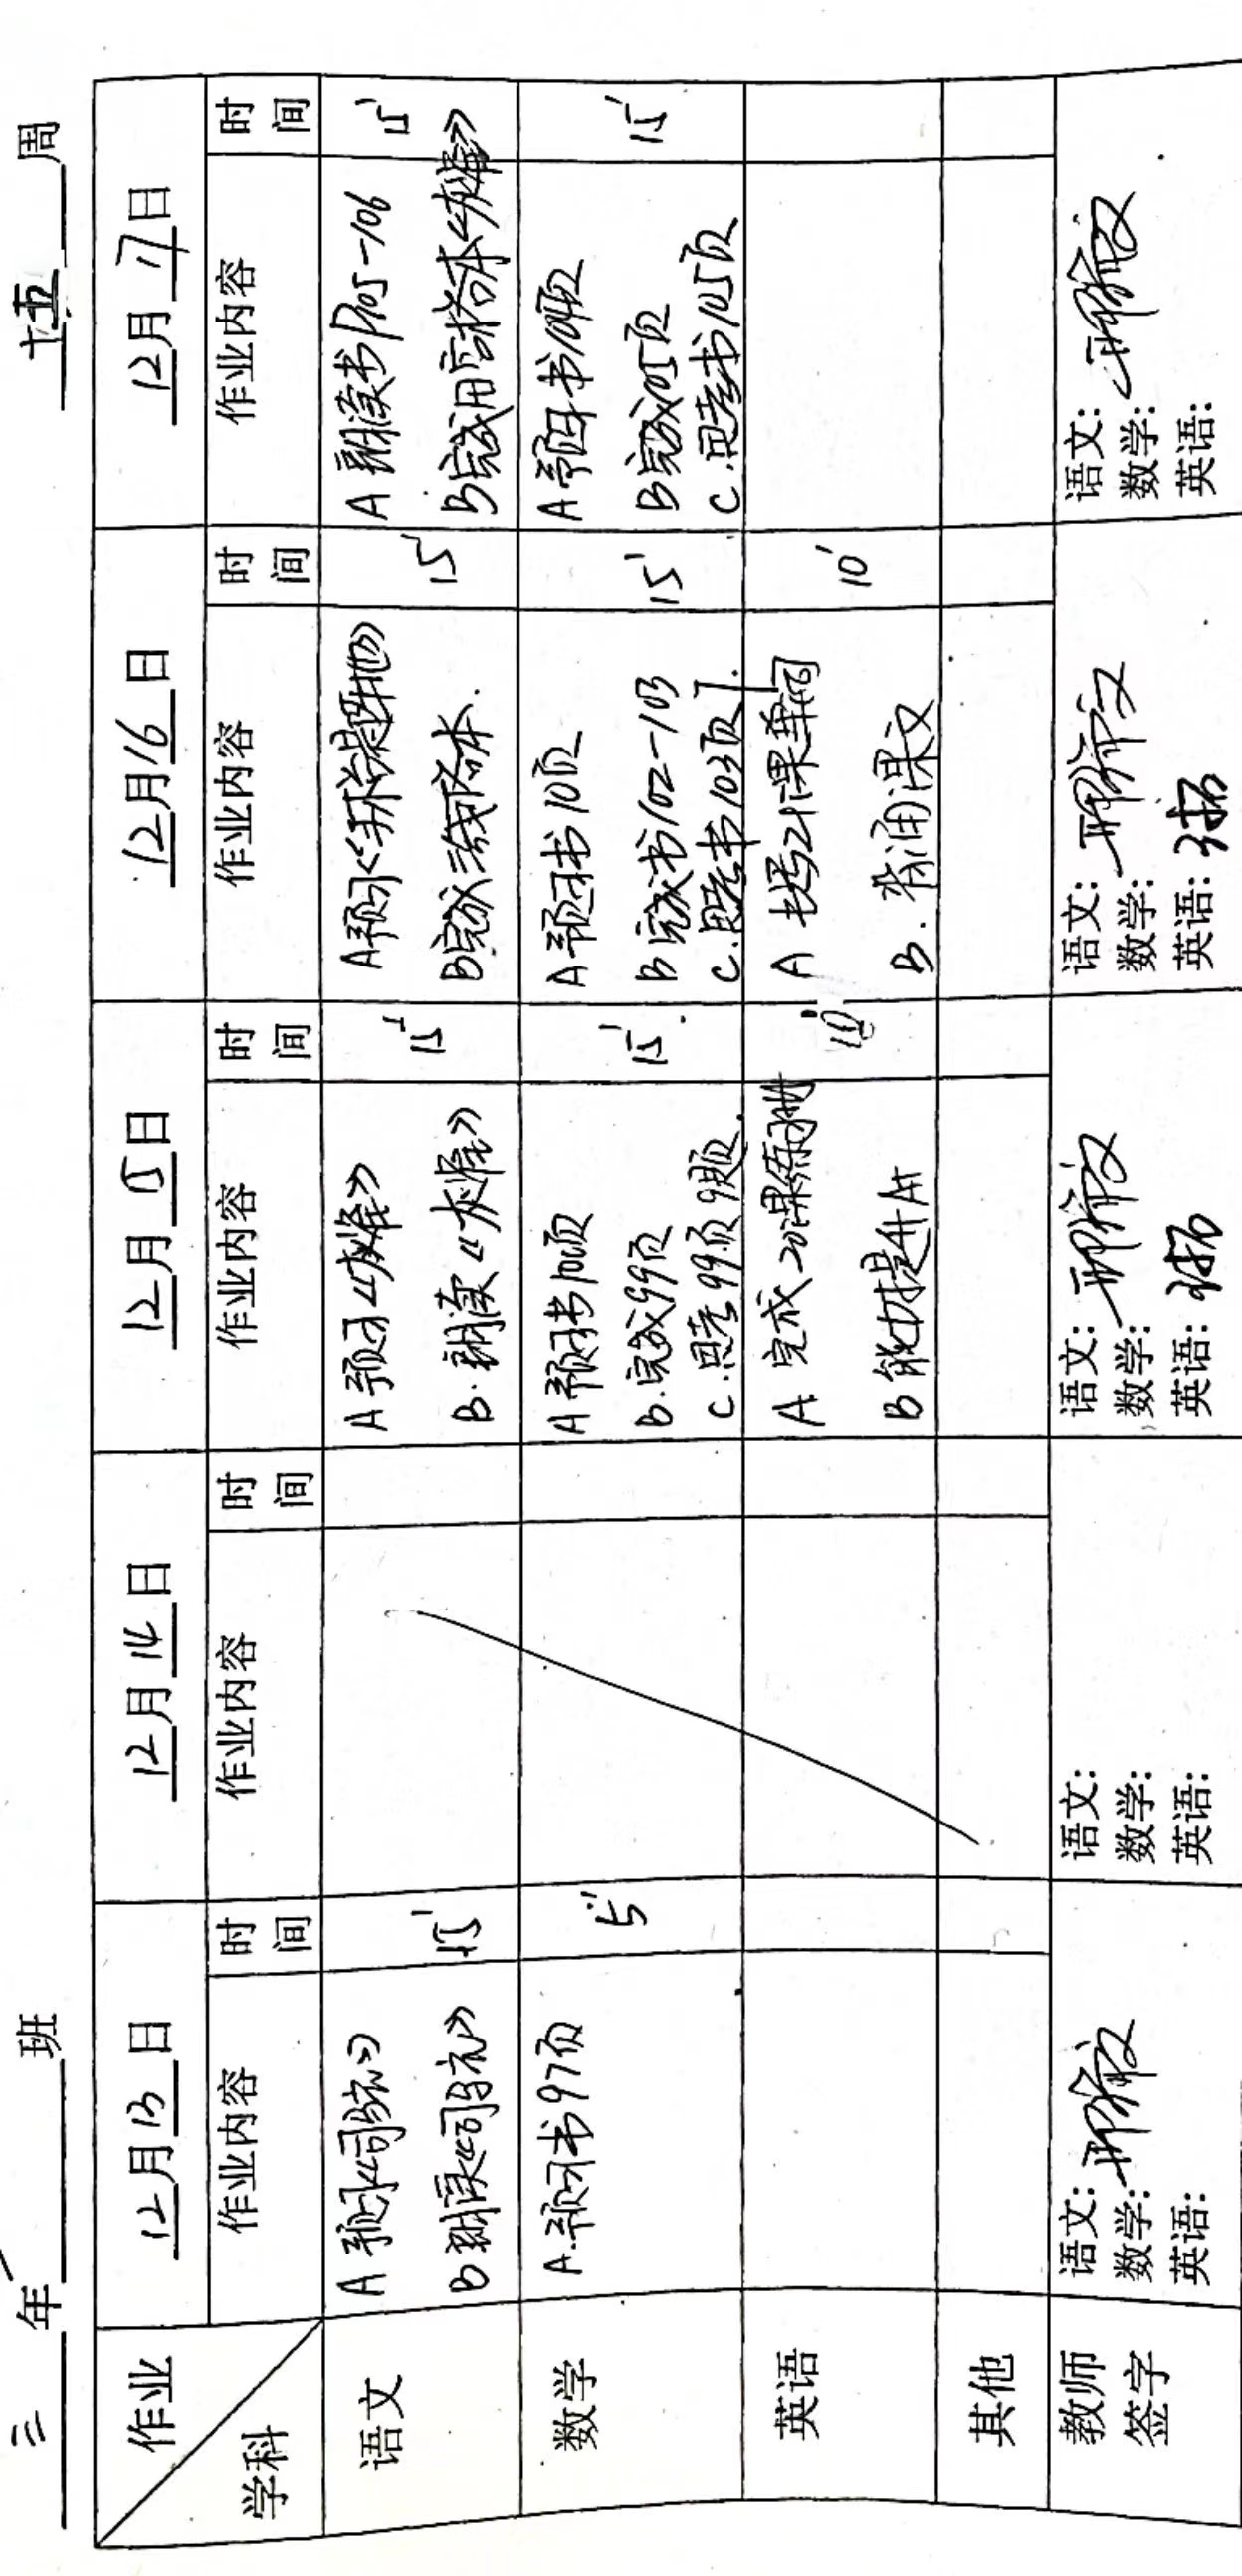 三 年 班 十五 周
作业
学科
12月13日 12月14日 12月15日 12月16日 12月17日
作业内容 时间 作业内容 时间 作业内容 时间 作业内容 时间 作业内容 时间
语文
A预习《司马光》
B朗读《司马光》 15'
A预习《灰雀》
B.朗读《灰雀》 15'
A预习《手术台就是阵地》
B完成习字格本. 15'
A朗读书P105-106
B完成田字格本《灰雀》 15'
数学
A.预习书97页 5'
A预习书100页
B.完成99页
C.思考99页9题. 15'
A预习书
B完成书102-103
C.思考书103页 15'
A预习书
B完成105页
C.思考书105页 15'
英语
A. 完成20课练习册
B能力提升A+ 10'
A 21课单词
B.背诵课文 10'
其他
教师
签字
语文:
数学:
英语:
语文:
数学:
英语:
语文:
数学:
英语:
语文:
数学:
英语:
语文:
数学:
英语: